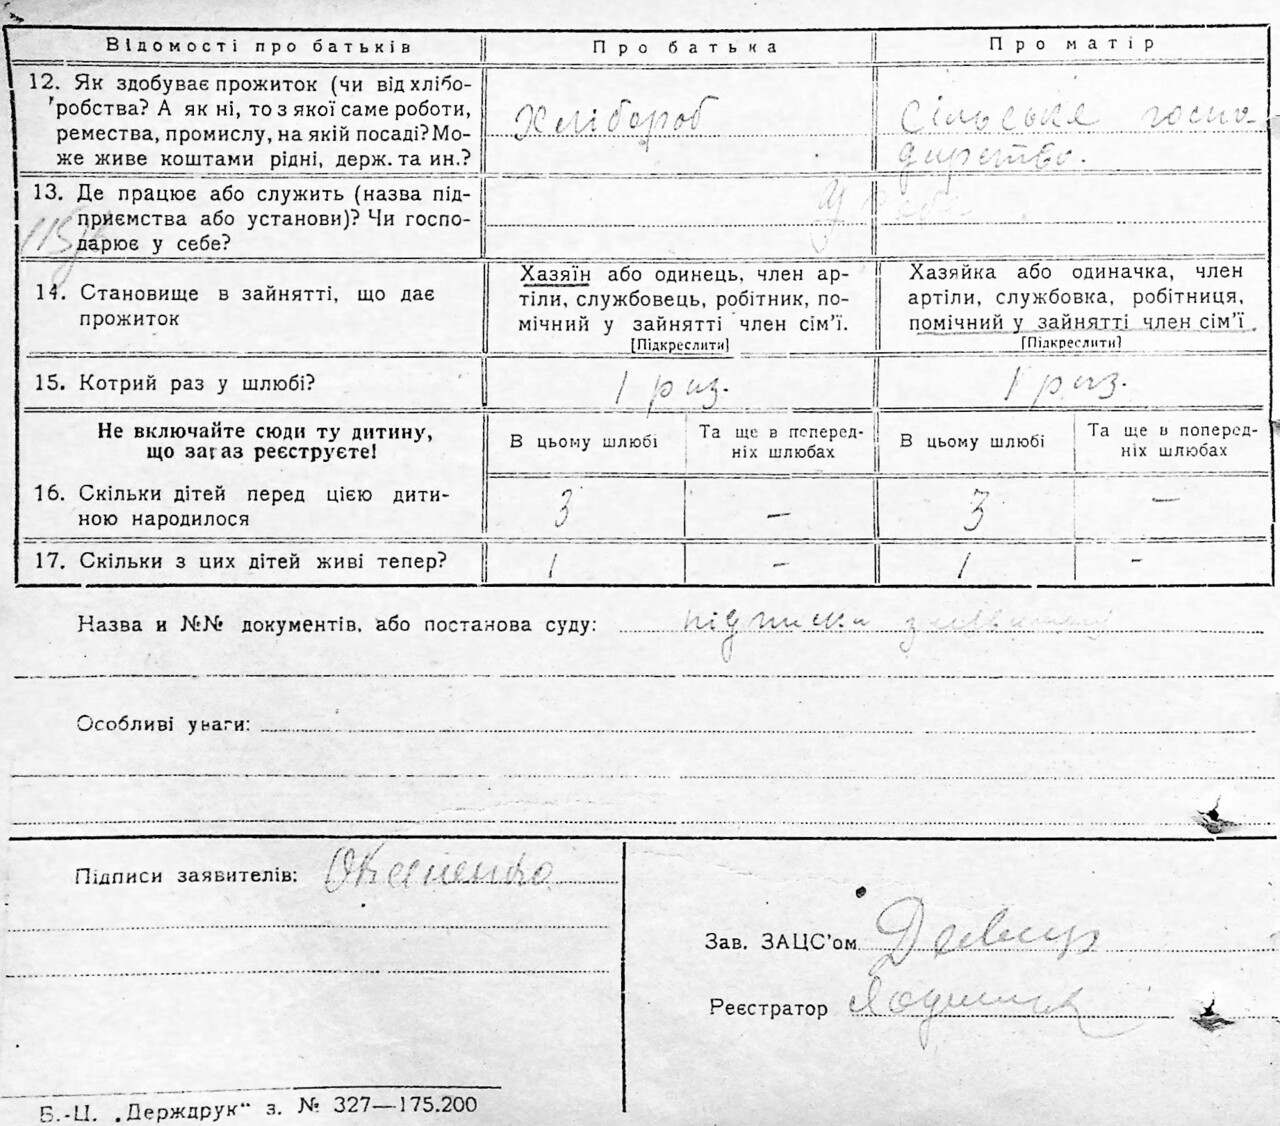 Відомості про батьків Про батька Про матір
12. Як здобуває прожиток (чи від хлібо-
робства? А як ні, то з якої саме роботи,
ремества, промислу, на якій посаді? Мо-
же живе коштами рідні, держ. та ин.?
Хлібороб
Сільське госпо-
дарство.
13. Де працює або служить (назва під-
приємства або установи)? Чи госпо-
дарює у себе?
У себе
14. Становище в зайнятті, що дає
прожиток
Хазяїн або одинець, член ар-
тіли, службовець, робітник, по-
мічний у зайнятті член сім'ї.
[Підкреслити]
Хазяйка або одиначка, член
артіли, службовка, робітниця,
помічний у зайнятті член сім'ї.
[Підкреслити]
15. Котрий раз у шлюбі? 1 раз. 1 раз.
Не включайте сюди ту дитину,
що зараз реєструєте!
В цьому шлюбі
Та ще в поперед-
ніх шлюбах
В цьому шлюбі
Та ще в поперед-
ніх шлюбах
16. Скільки дітей перед цією дити-
ною народилося
3 – 3 –
17. Скільки з цих дітей живі тепер? 1 – 1 –
Назва и №№ документів, або постанова суду: підписки
Особливі уваги:
Підписи заявителів:
Зав. ЗАЦС'ом
Реєстратор
Б.-Ц. „Держдрук" з. № 327—175.200